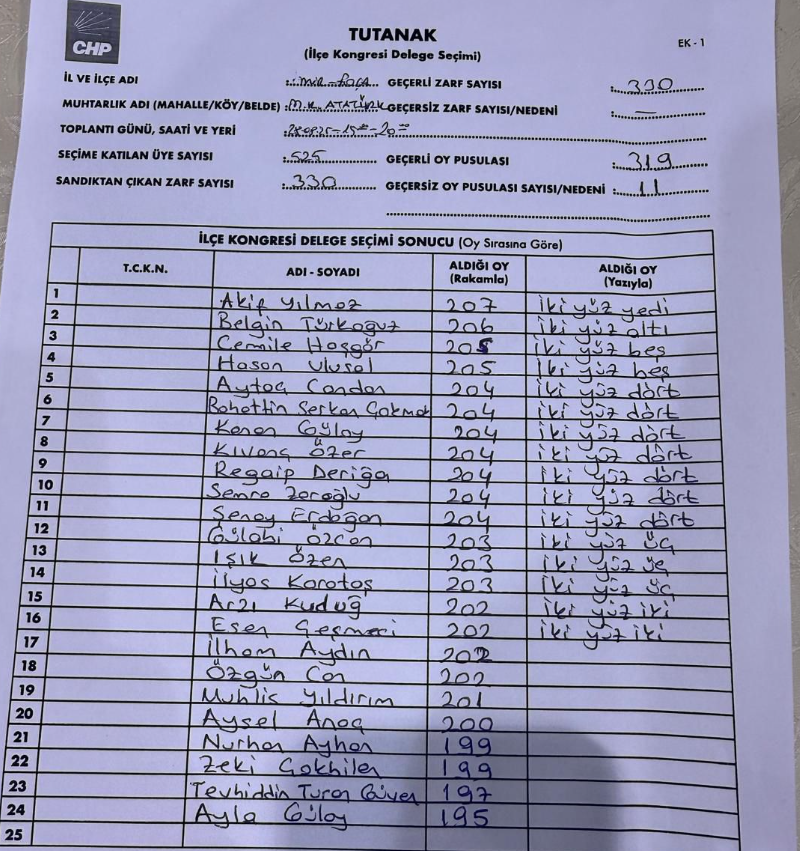 CHP
TUTANAK
(İlçe Kongresi Delege Seçimi)
EK - 1
İL VE İLÇE ADI : GEÇERLİ ZARF SAYISI : 330
MUHTARLIK ADI (MAHALLE/KÖY/BELDE) : M.K. ATATÜRK GEÇERSİZ ZARF SAYISI/NEDENİ : —
TOPLANTI GÜNÜ, SAATİ VE YERİ :
SEÇİME KATILAN ÜYE SAYISI : 525 GEÇERLİ OY PUSULASI : 319
SANDIKTAN ÇIKAN ZARF SAYISI : 330 GEÇERSİZ OY PUSULASI SAYISI/NEDENİ : 11
İLÇE KONGRESİ DELEGE SEÇİMİ SONUCU (Oy Sırasına Göre)
T.C.K.N. ADI - SOYADI ALDIĞI OY (Rakamla) ALDIĞI OY (Yazıyla)
1 Akif Yılmaz 207 İki yüz yedi
2 Belgin Türkoğuz 206 İki yüz altı
3 Cemile Hoşgör 205 İki yüz beş
4 Hasan Ulusal 205 İki yüz beş
5 Aytaç Candan 204 İki yüz dört
6 Bahettin Serkan Gökmek 204 İki yüz dört
7 Kenan Gülay 204 İki yüz dört
8 Kıvanç Özer 204 İki yüz dört
9 Regaip Deriğa 204 İki yüz dört
10 Semra Zoroğlu 204 İki yüz dört
11 Şenay Erdoğan 204 İki yüz dört
12 Gülabi Özcan 203 İki yüz üç
13 Işık Özen 203 İki yüz üç
14 İlyas Karataş 203 İki yüz üç
15 Arzı Kuduğ 202 İki yüz iki
16 Esen Geçmeri 202 İki yüz iki
17 İlham Aydın 202
18 Özgün Can 202
19 Muhlis Yıldırım 201
20 Aysel Anaç 200
21 Nurhan Ayhan 199
22 Zeki Gökhiler 199
23 Tevhiddin Turan Güven 197
24 Ayla Gülay 195
25